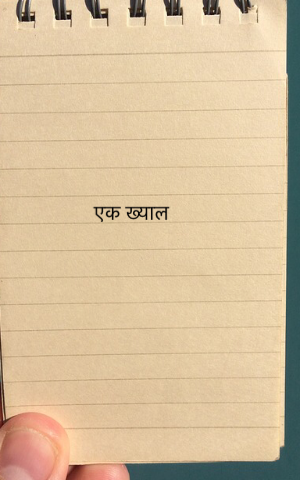 एक ख्याल